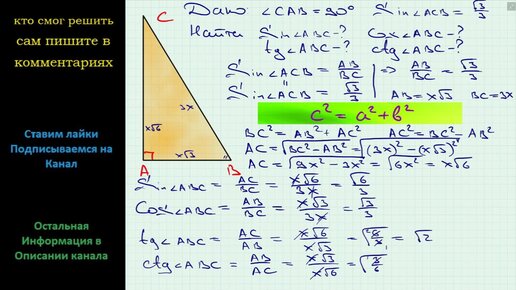 кто смог решить
сам пишите в
комментариях
Ставим лайки
Подписываемся на
Канал
Остальная
Информация в
Описании канала
C
3x
x√6
x√3
A
B
Дано ∠CAB=90° Sin∠ACB=√3/3
Найти Sin∠ABC-? Cos∠ABC-?
tg∠ABC-? ctg∠ABC-?
Sin∠ACB=AB/BC => AB/BC=√3/3
Sin∠ACB=√3/3 AB=x√3 BC=3x
c²=a²+b²
BC²=AB²+AC² AC²=BC²-AB²
AC=√BC²-AB²=√(3x)²-(x√3)²
AC=√9x²-3x²=√6x²=x√6
Sin∠ABC=AC/BC=x√6/3x=√6/3
Cos∠ABC=AB/BC=x√3/3x=√3/3
tg∠ABC=AC/AB=x√6/x√3=√6/3=√2
ctg∠ABC=AB/AC=x√3/x√6=√3/6